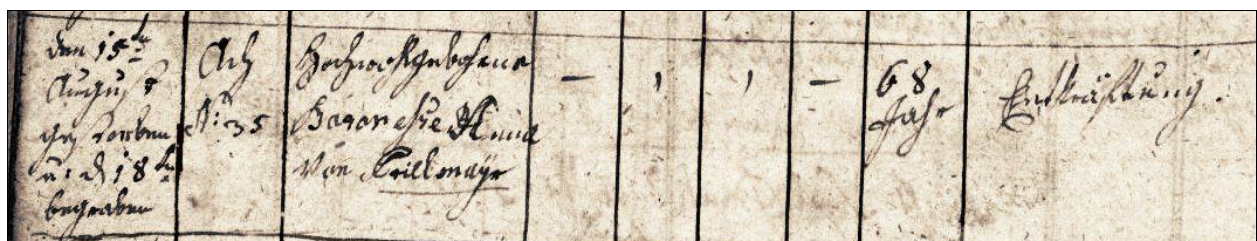 den 15ten
August
gestorben
u: d 18ten
begraben
Ach
No: 35
Hochwohlgebohrene
Baronesse Anna
Von Prillmayr
–
,
,
–
68
Jahr
Entkräftung.